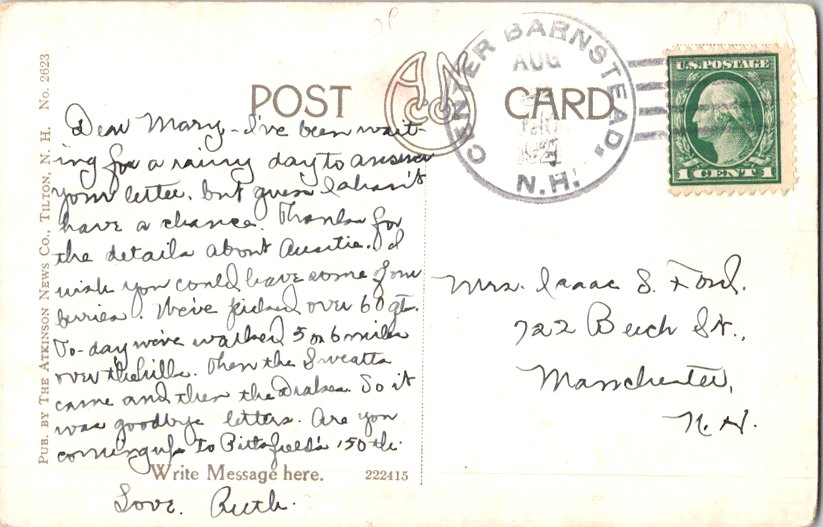 PUB. BY THE ATKINSON NEWS CO., TILTON, N. H. No. 2623
POST CARD
ANCo
CENTER BARNSTEAD,
AUG
N.H.
U.S. POSTAGE
1 CENT 1
Dear Mary - I've been wait-
ing for a rainy day to answer
your letter, but guess I shan't
have a chance. Thanks for
the details about Auntie. I
wish you could have some of our
berries. We've picked over 60 qts.
To-day we've walked 5 or 6 miles
over the hills. Then the Sweatts
came and then the Drakes. So it
was goodbye letters. Are you
coming up to Pittsfield's 150th.
Love. Ruth.
Write Message here.
222415
Mrs. Isaac S. Ford.
722 Beech St.,
Manchester,
N. H.